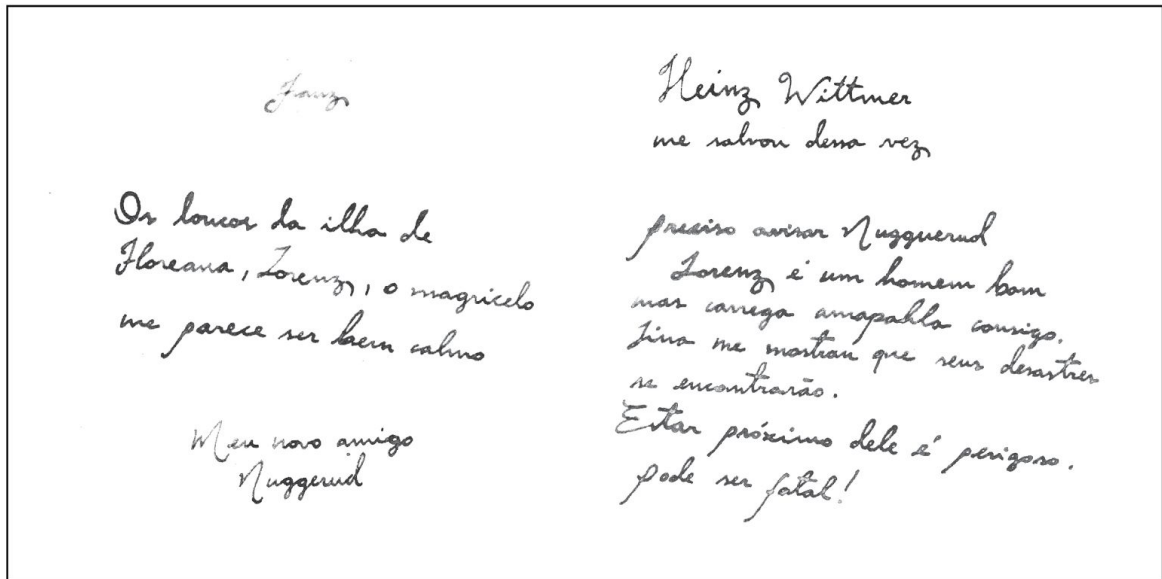 Os loucos da ilha de
Floreana, Lorenz, o magricelo
me parece ser bem calmo
Meu novo amigo
Nuggerud
Heinz Wittmer
me salvou dessa vez
preciso avisar Nugguerud
Lorenz é um homem bom
mas carrega consigo.
me mostrou que seus desastres
se encontrarão.
Estar próximo dele é perigoso.
pode ser fatal!